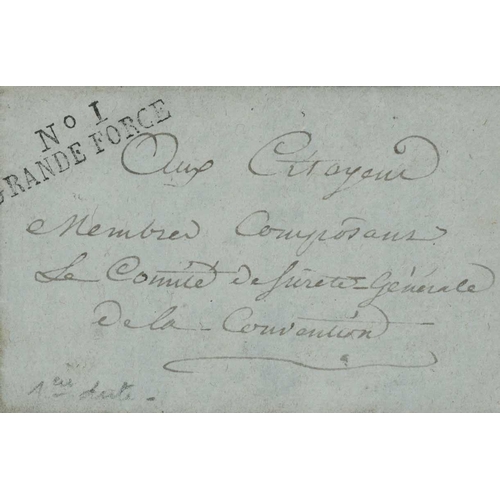 No I
GRANDE FORCE
Aux Citoyens
Membres Composans
Le Comité de Sureté Générale
de la Convention
1ere